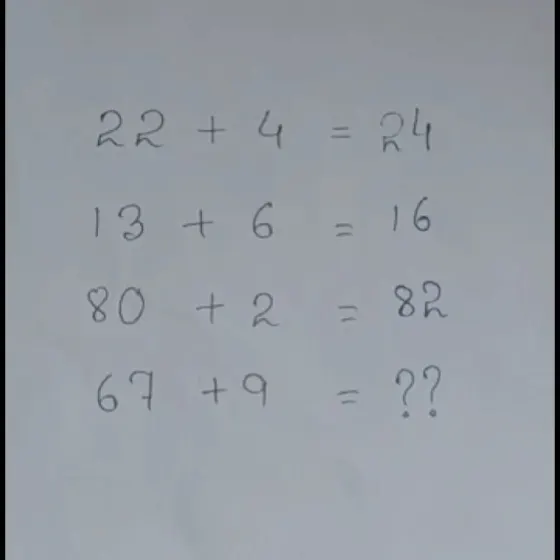 22 + 4 = 24
13 + 6 = 16
80 + 2 = 82
67 + 9 = ??